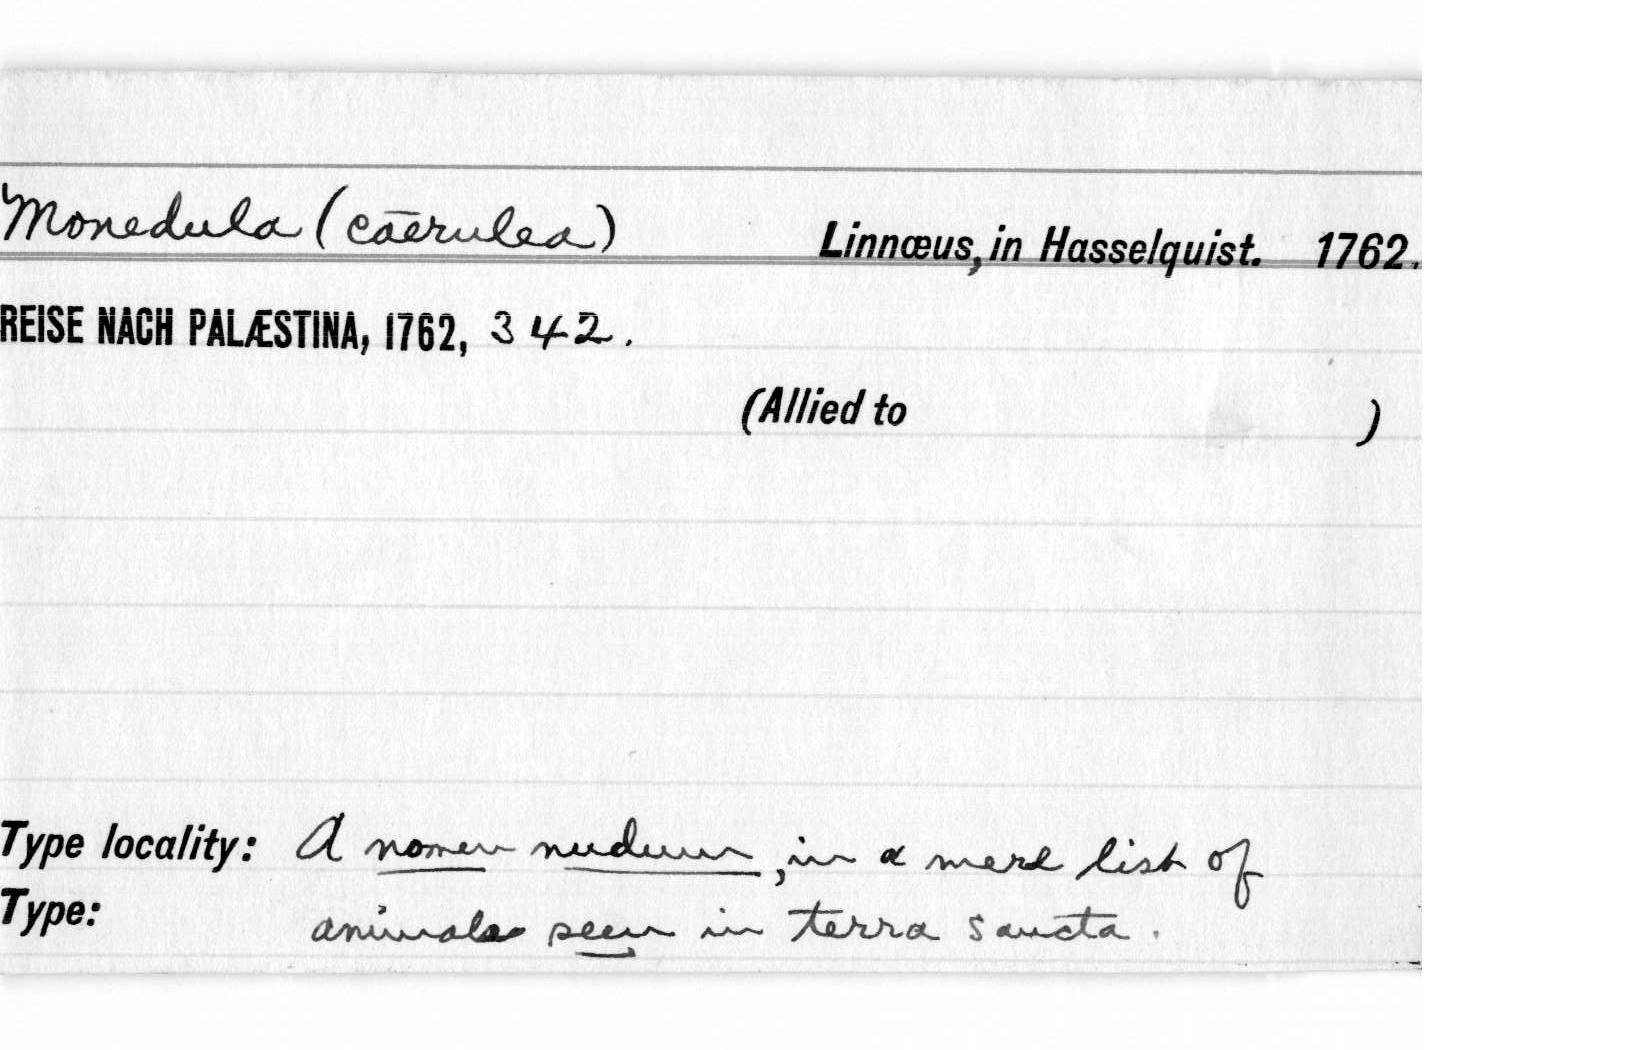 Monedula (cāerulea) Linnœus, in Hasselquist. 1762.
REISE NACH PALÆSTINA, 1762, 342.
(Allied to )
Type locality: A nomen nudum, in a mere list of
Type: animals seen in terra sancta.